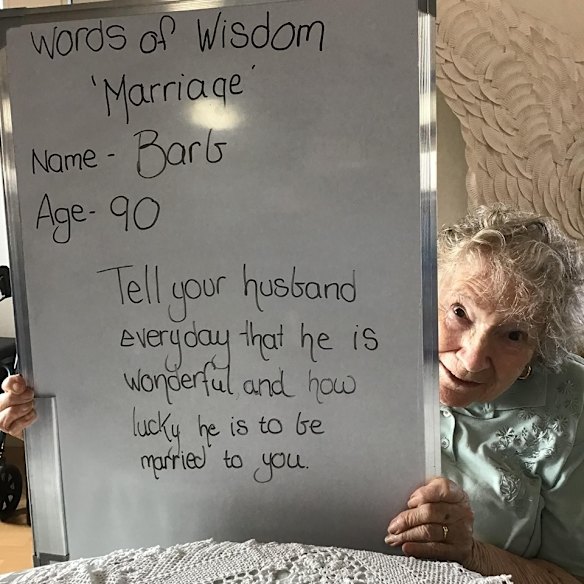 Words of Wisdom
'Marriage'
Name - Barb
Age - 90
Tell your husband
everyday that he is
wonderful and how
lucky he is to be
married to you.